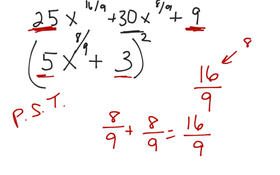 25x^{16/9} + 30x^{8/9} + 9
(5x^{8/9} + 3)^2
8
16/9
P.S.T.
8/9 + 8/9 = 16/9